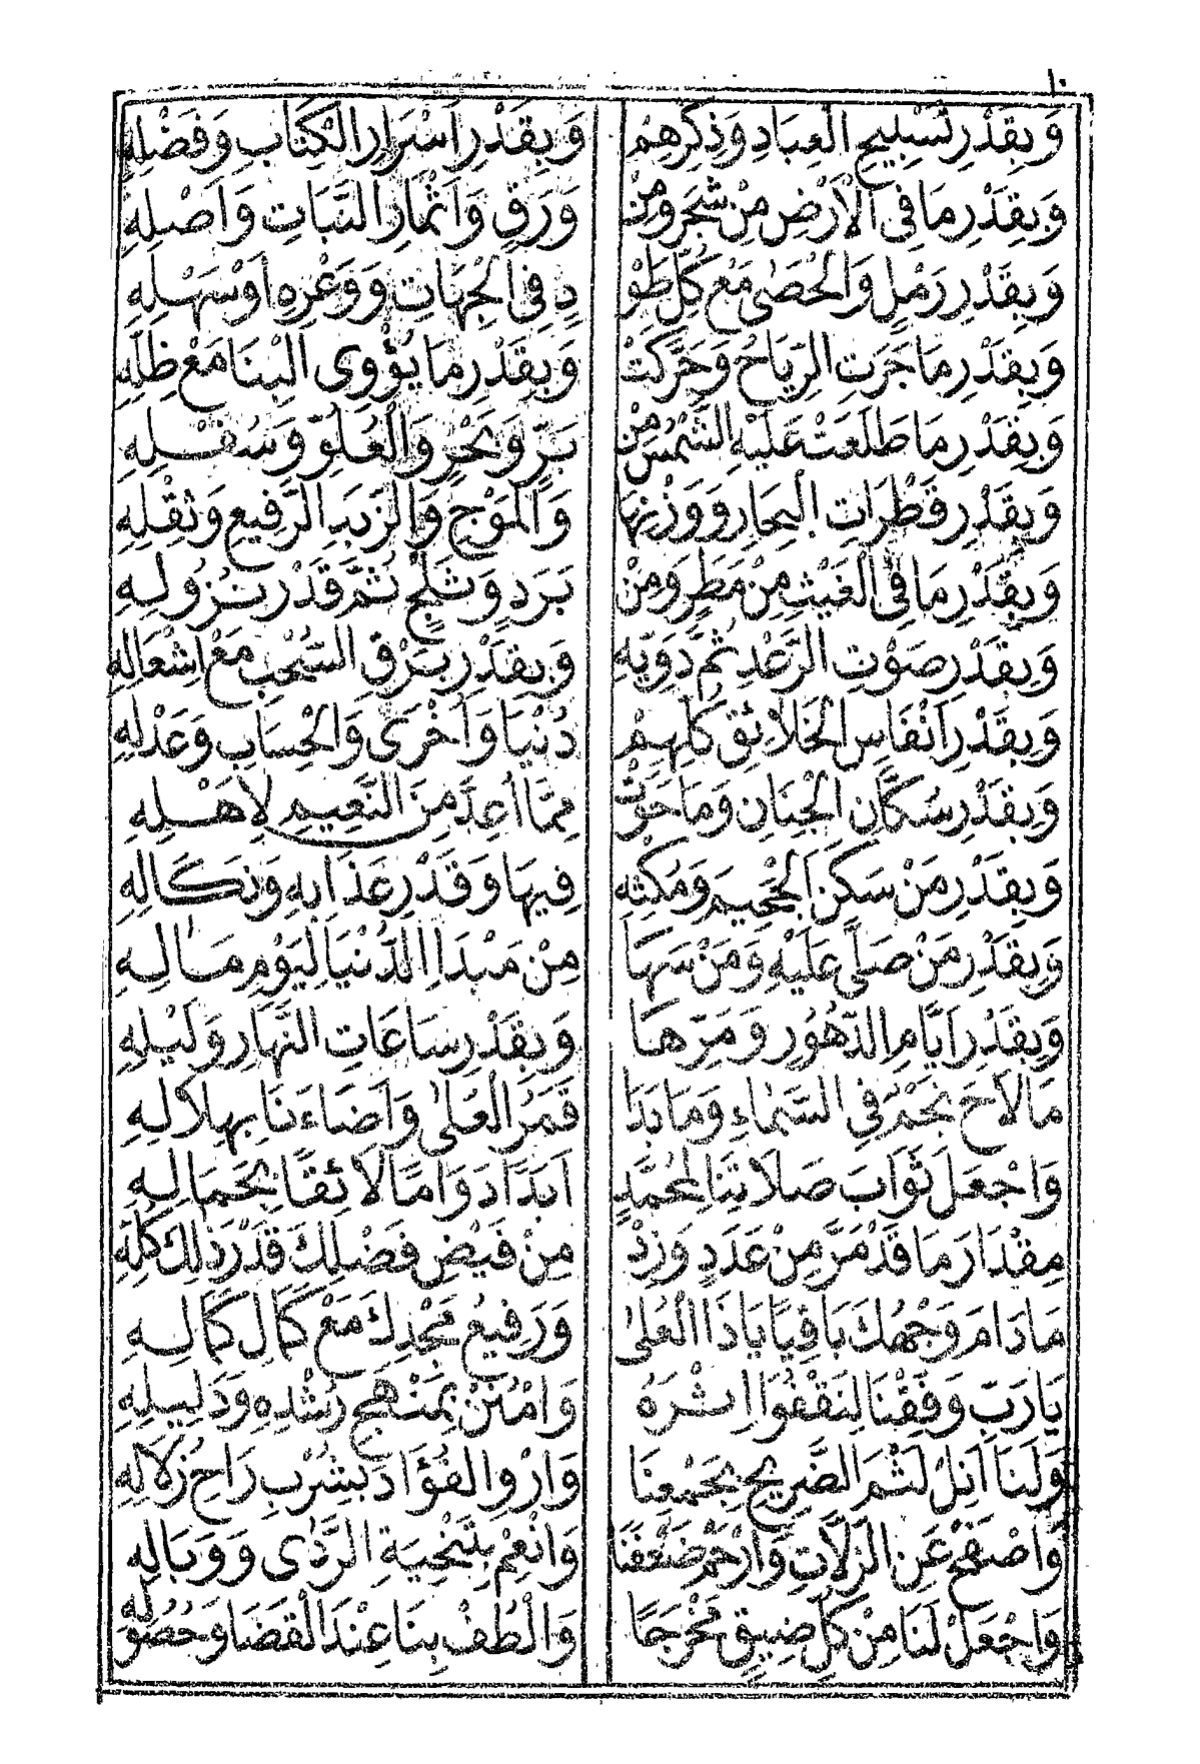 ١٠
وَبِقَدْرِ تَسْبِيحِ الْعِبَادِ وَذِكْرِهِمْ وَبِقَدْرِ اَسْرَارِ الْكِتَابِ وَفَضْلِهِ
وَبِقَدْرِ مَا فِى الْاَرْضِ مِنْ شَجَرٍ وَمِنْ وَرَقٍ وَاَثْمَارِ النَّبَاتِ وَاَصْلِهِ
وَبِقَدْرِ رَمْلٍ وَالْحَصٰى مَعْ كُلِّ طَوْ دٍ فِى الْجِهَاتِ وَوَعْرِهِ اَوْ سَهْلِهِ
وَبِقَدْرِ مَا جَرَتِ الرِّيَاحُ وَحَرَّكَتْ وَبِقَدْرِ مَا يُؤْوِى الْبِنَا مَعْ ظِلِّهِ
وَبِقَدْرِ مَا طَلَعَتْ عَلَيْهِ الشَّمْسُ مِنْ بَرٍّ وَبَحْرٍ وَالْعُلُوِّ وَسُفْلِهِ
وَبِقَدْرِ قَطْرَاتِ الْبِحَارِ وَوَزْنِهَا وَالْمَوْجِ وَالزَّبَدِ الرَّفِيعِ وَثِقْلِهِ
وَبِقَدْرِ مَا فِى الْغَيْثِ مِنْ مَطَرٍ وَمِنْ بَرَدٍ وَثَلْجٍ ثُمَّ قَدْرِ نُزُولِهِ
وَبِقَدْرِ صَوْتِ الرَّعْدِ ثُمَّ دَوِيِّهِ وَبِقَدْرِ بَرْقِ السُّحْبِ مَعْ اِشْعَالِهِ
وَبِقَدْرِ اَنْفَاسِ الْخَلَائِقِ كُلِّهِمْ دُنْيَا وَاُخْرَى وَالْحِسَابِ وَعَدْلِهِ
وَبِقَدْرِ سُكَّانِ الْجِنَانِ وَمَا حَوَتْ مِمَّا اُعِدَّ مِنَ النَّعِيمِ لِاَهْلِهِ
وَبِقَدْرِ مَنْ سَكَنَ الْجَحِيمَ وَمُكْثِهِ فِيهَا وَقَدْرِ عَذَابِهِ وَنَكَالِهِ
وَبِقَدْرِ مَنْ صَلَّى عَلَيْهِ وَمَنْ سَهَا مِنْ مَبْدَاِ الدُّنْيَا لِيَوْمِ مَاٰلِهِ
وَبِقَدْرِ اَيَّامِ الدُّهُورِ وَمَرِّهَا وَبِقَدْرِ سَاعَاتِ النَّهَارِ وَلَيْلِهِ
مَا لَاحَ نَجْمٌ فِى السَّمَاءِ وَمَا بَدَا قَمَرُ الْعُلٰى وَاَضَاءَنَا بِهِلَالِهِ
وَاجْعَلْ ثَوَابَ صَلَاتِنَا لِمُحَمَّدٍ اَبَدًا دَوَامًا لَائِقًا بِجَمَالِهِ
مِقْدَارَ مَا قَدْ مَرَّ مِنْ عَدَدٍ وَزِدْ مِنْ فَيْضِ فَضْلِكَ قَدْرَ ذٰلِكَ كُلِّهِ
مَا دَامَ وَجْهُكَ بَاقِيًا يَا ذَا الْعُلٰى وَرَفِيعُ مَجْدِكَ مَعْ كَمَالِ كَمَالِهِ
يَا رَبِّ وَفِّقْنَا لِنَقْفُوا اِثْرَهُ وَامْنُنْ بِمَنْهَجِ رُشْدِهِ وَدَلِيلِهِ
وَلَنَا اَنِلْ لَثْمَ الضَّرِيحِ بِجَمْعِنَا وَارْوِ الْفُؤَادَ بِشُرْبِ رَاحِ زُلَالِهِ
وَاصْفَحْ عَنِ الزَّلَّاتِ وَارْحَمْ ضَعْفَنَا وَانْعِمْ بِتَنْحِيَةِ الرَّدٰى وَوَبَالِهِ
وَاجْعَلْ لَنَا مِنْ كُلِّ ضِيقٍ مَخْرَجًا وَالْطُفْ بِنَا عِنْدَ الْقَضَا وَحُصُولِهِ